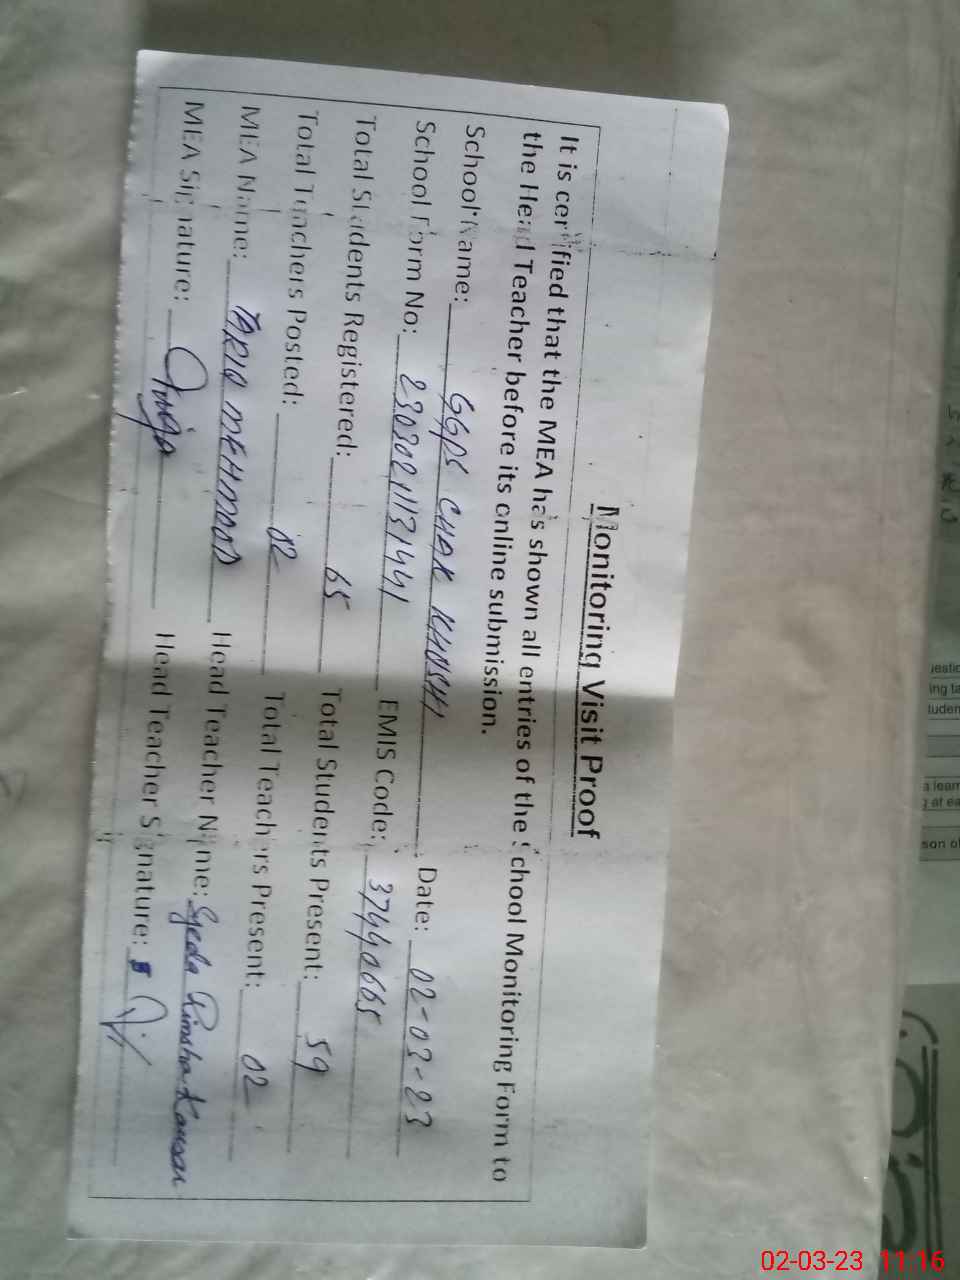 Monitoring Visit Proof
It is certified that the MEA has shown all entries of the School Monitoring Form to
the Head Teacher before its online submission.
School Name: GGPS CHAK KHUSHI Date: 02-03-23
School Form No: 23030211131441 EMIS Code: 37440665
Total Students Registered: 65 Total Students Present: 59
Total Teachers Posted: 02 Total Teachers Present: 02
MEA Name: TARIQ MEHMOOD Head Teacher Name: Syeda Rimsha Kausar
MEA Signature: Head Teacher Signature:
02-03-23 11:16